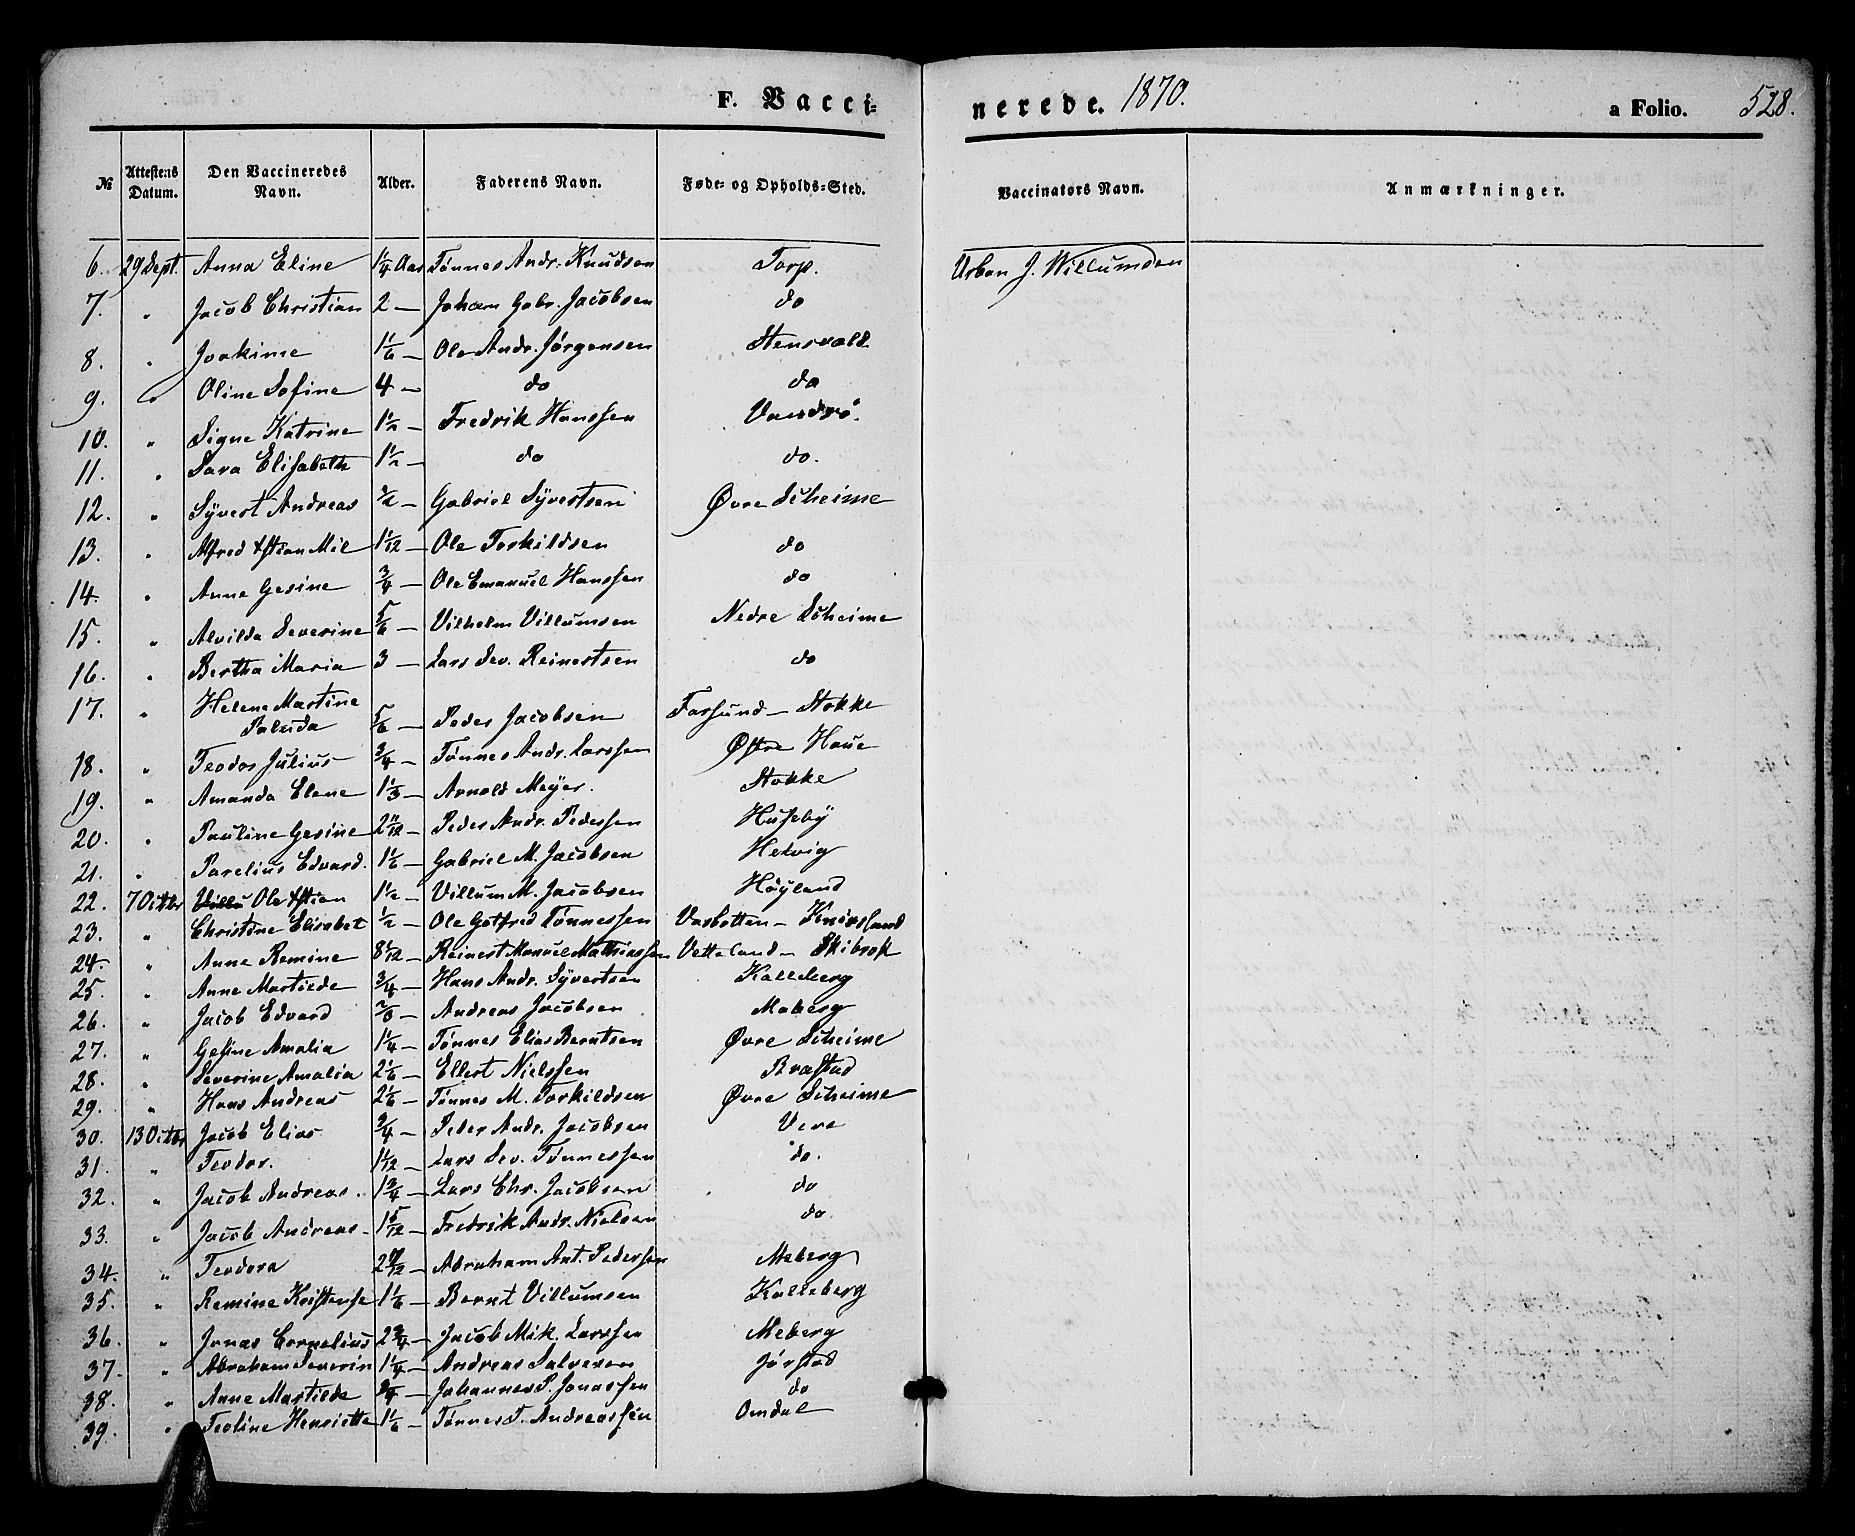 F. Vacci-
nerede. 1870. a Folio. 528.
№ Attestens Datum. Den Vaccineredes Navn. Alder. Faderens Navn. Føde- og Opholds-Sted. Vaccinators Navn. Anmærkninger.
6. 29 Sept. Anna Eline 1 1/4 Aar Tønnes Andr. Knudsen Torp. Urban J. Willumsen
7. " Jacob Christian 2 — Johan Gabr. Jacobsen do
8. " Joakime 1 1/6 — Ole Andr. Jørgensen Stensvold
9. " Oline Sofine 4 — do do
10. " Signe Katrine 1 1/2 — Fredrik Hanssen
11. " Sara Elisabeth 1 1/2 — do do.
12. " Syvert Andreas — Gabriel Syvertsen Øvre Scheime
13. " Alfred Mil 1 1/12 — Ole Torkildsen do
14. " Anne Gesine 3/4 — Ole Emanuel Hanssen do
15. " Alvilda Severine 5/6 — Vilhelm Villumsen Nedre Scheime
16. " Bertha Maria 3 — Lars Sev. Reinertsen do
17. " Helene Martine Paluda 5/6 — Peder Jacobsen Farsund — Stokke
18. " Teodor Julius 3/4 — Tønnes Andr. Larssen Østre Haue
19. " Amanda Elene 1 1/3 — Arnold Meyer. Stokke
20. " Pauline Gesine 2 11/12 — Peder Andr. Pedersen Huseby
21. " Parelius Edvard. 1 1/6 — Gabriel M. Jacobsen Helvig
22. 7 Octbr Ole Xstian 1 1/2 — Villum M. Jacobsen Høyland
23. " Christine Elisabet 1/2 — Ole Gotfred Tønnessen Vasbotten — Knivsland
24. " Anne Remine 8 1/12 — Reinert Manuel Mathiassen Vetteland — Skibrok
25. " Anne Martilde 3/4 — Hans Andr. Syvertsen Kalleberg
26. " Jacob Edvard — Andreas Jacobsen Meberg
27. " Gesine Amalia 1 1/4 — Tønnes Elias Berntsen Øvre Scheime
28. " Severine Amalia 2 1/6 — Ellert Nielssen Brastad
29. " Hans Andreas 2 1/6 — Tønnes M. Torkildsen Øvre Scheime
30. 13 Octbr Jacob Elias 3/4 — Peder Andr. Jacobsen Vere
31. " Teodor. 1 1/12 — Lars Sev. Tønnessen do.
32. " Jacob Andreas. 1 3/4 — Lars Chr. Jacobsen do
33. " Jacob Andreas — 1 5/12 — Fredrik Andr. Nielsen do.
34. " Teodora — Abraham Ant. Pedersen Meberg
35. " Remine Kristense 1 1/6 — Bernt Villumsen Kalleberg
36. " Jonas Cornelius 2 3/4 — Jacob Mik. Larssen Meberg
37. " Abraham Severin 1 1/4 — Andreas Salvesen Jørstad
38. " Anne Martilde 3/4 — Johannes P. Jonassen do
39. " Teoline Henriette 1 1/6 — Tønnes T. Andreassen Omdal